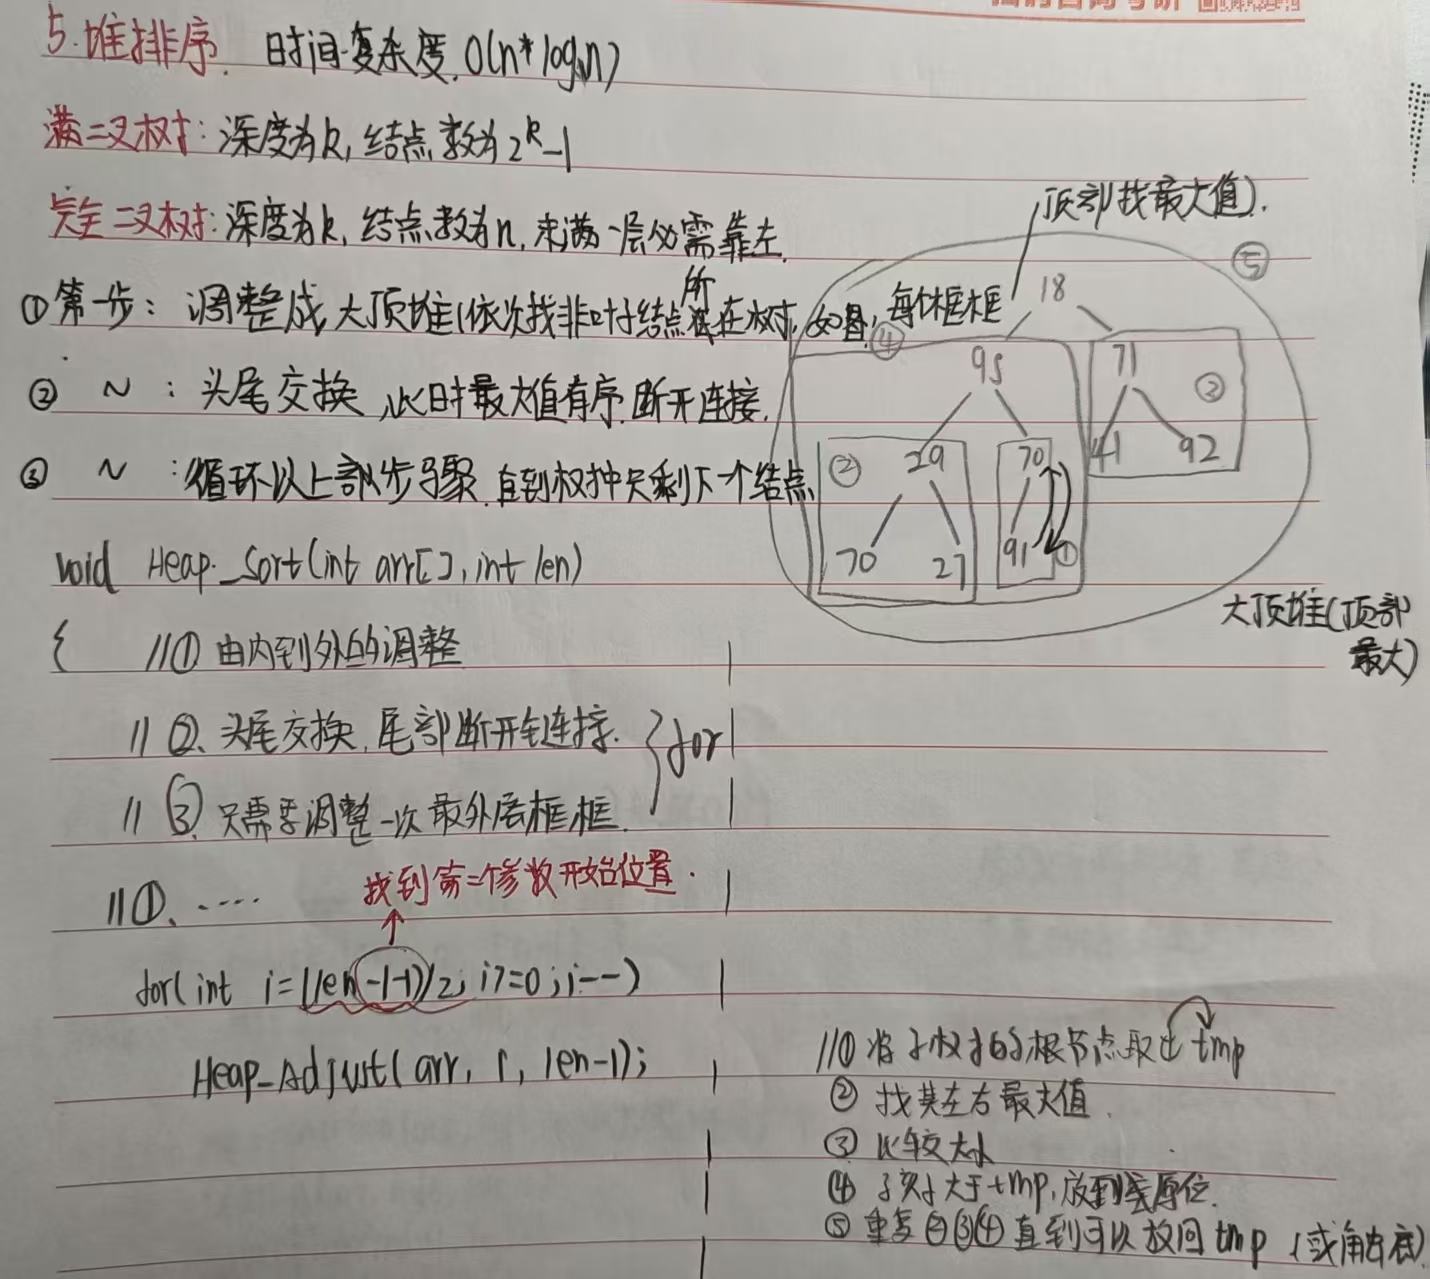 5.堆排序. 时间复杂度.O(n*log₂n)
满二叉树:深度为k,结点数为2^k-1
完全二叉树:深度为k,结点数为n,未满一层必需靠左.
顶部找最大值).
①第一步: 调整成大顶堆(依次找非叶子结点所在树,如图,每个框框
② ~ : 头尾交换,此时最大值有序.断开连接.
③ ~ :循环以上部步骤.直到树中只剩下一个结点
⑤
18
④ 95 71 ③
② 29 70 41 92
70 27 91 ①
大顶堆(顶部
最大)
void Heap_Sort(int arr[],int len)
{ //① 由内到外的调整
// ②、头尾交换,尾部断开连接.
// ③.只需要调整一次最外层框框.
} for
//①、....
找到第二个参数开始位置.
for(int i=(len-1-1)/2;i>=0;i--)
Heap_Adjust(arr, i, len-1);
//① 将子树的根节点取出tmp
② 找其左右最大值.
③ 比较大小
④ 孩子大于tmp,放到原位.
⑤ 重复②③④直到可以放回tmp (或触底)